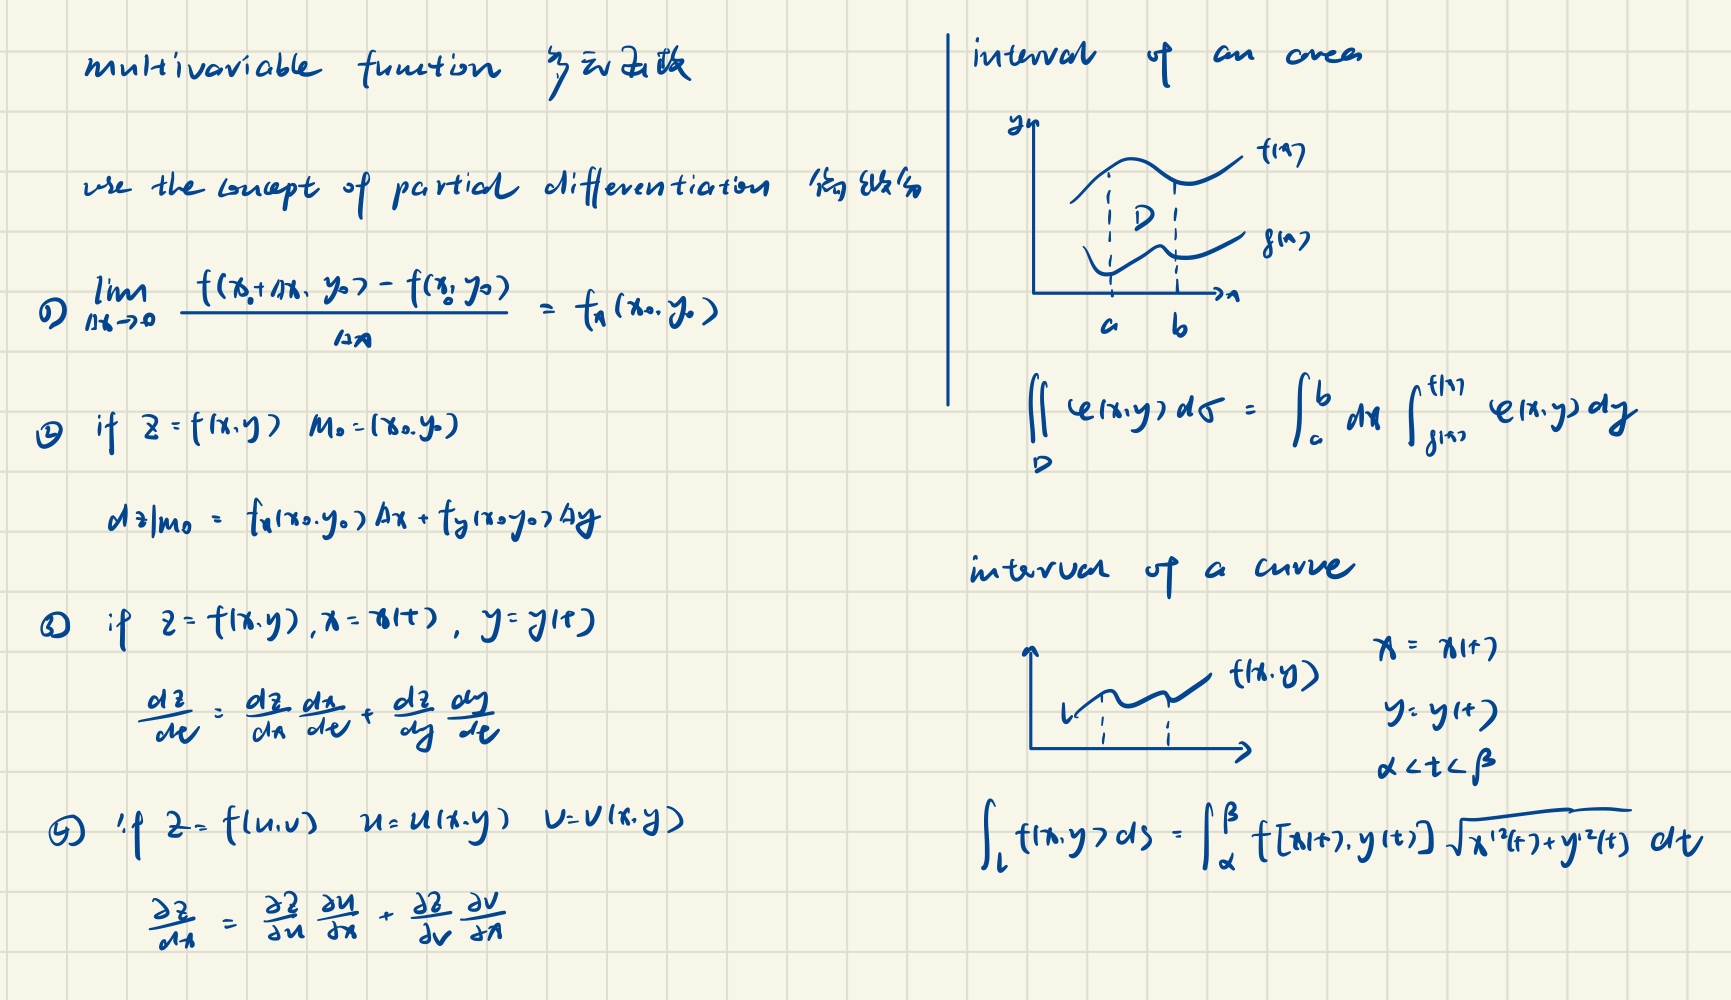 multivariable function 多元函数
use the concept of partial differentiation 偏微分
① lim Δx→0 f(x₀+Δx, y₀) - f(x₀, y₀) / Δx = fx(x₀, y₀)
② if z = f(x,y) M₀ = (x₀,y₀)
dz|M₀ = fx(x₀,y₀) Δx + fy(x₀,y₀) Δy
③ if z = f(x,y), x = x(t), y = y(t)
dz/dt = dz/dx dx/dt + dz/dy dy/dt
④ if z = f(u,v) u = u(x,y) v = v(x,y)
∂z/dx = ∂z/∂u ∂u/∂x + ∂z/∂v ∂v/∂x
interval of an area
y
f(x)
D
g(x)
x
a b
∬D φ(x,y) dσ = ∫ₐᵇ dx ∫g(x)^f(x) φ(x,y) dy
interval of a curve
f(x,y)
L
x = x(t)
y = y(t)
α < t < β
∫L f(x,y) ds = ∫α^β f[x(t), y(t)] √(x'²(t) + y'²(t)) dt